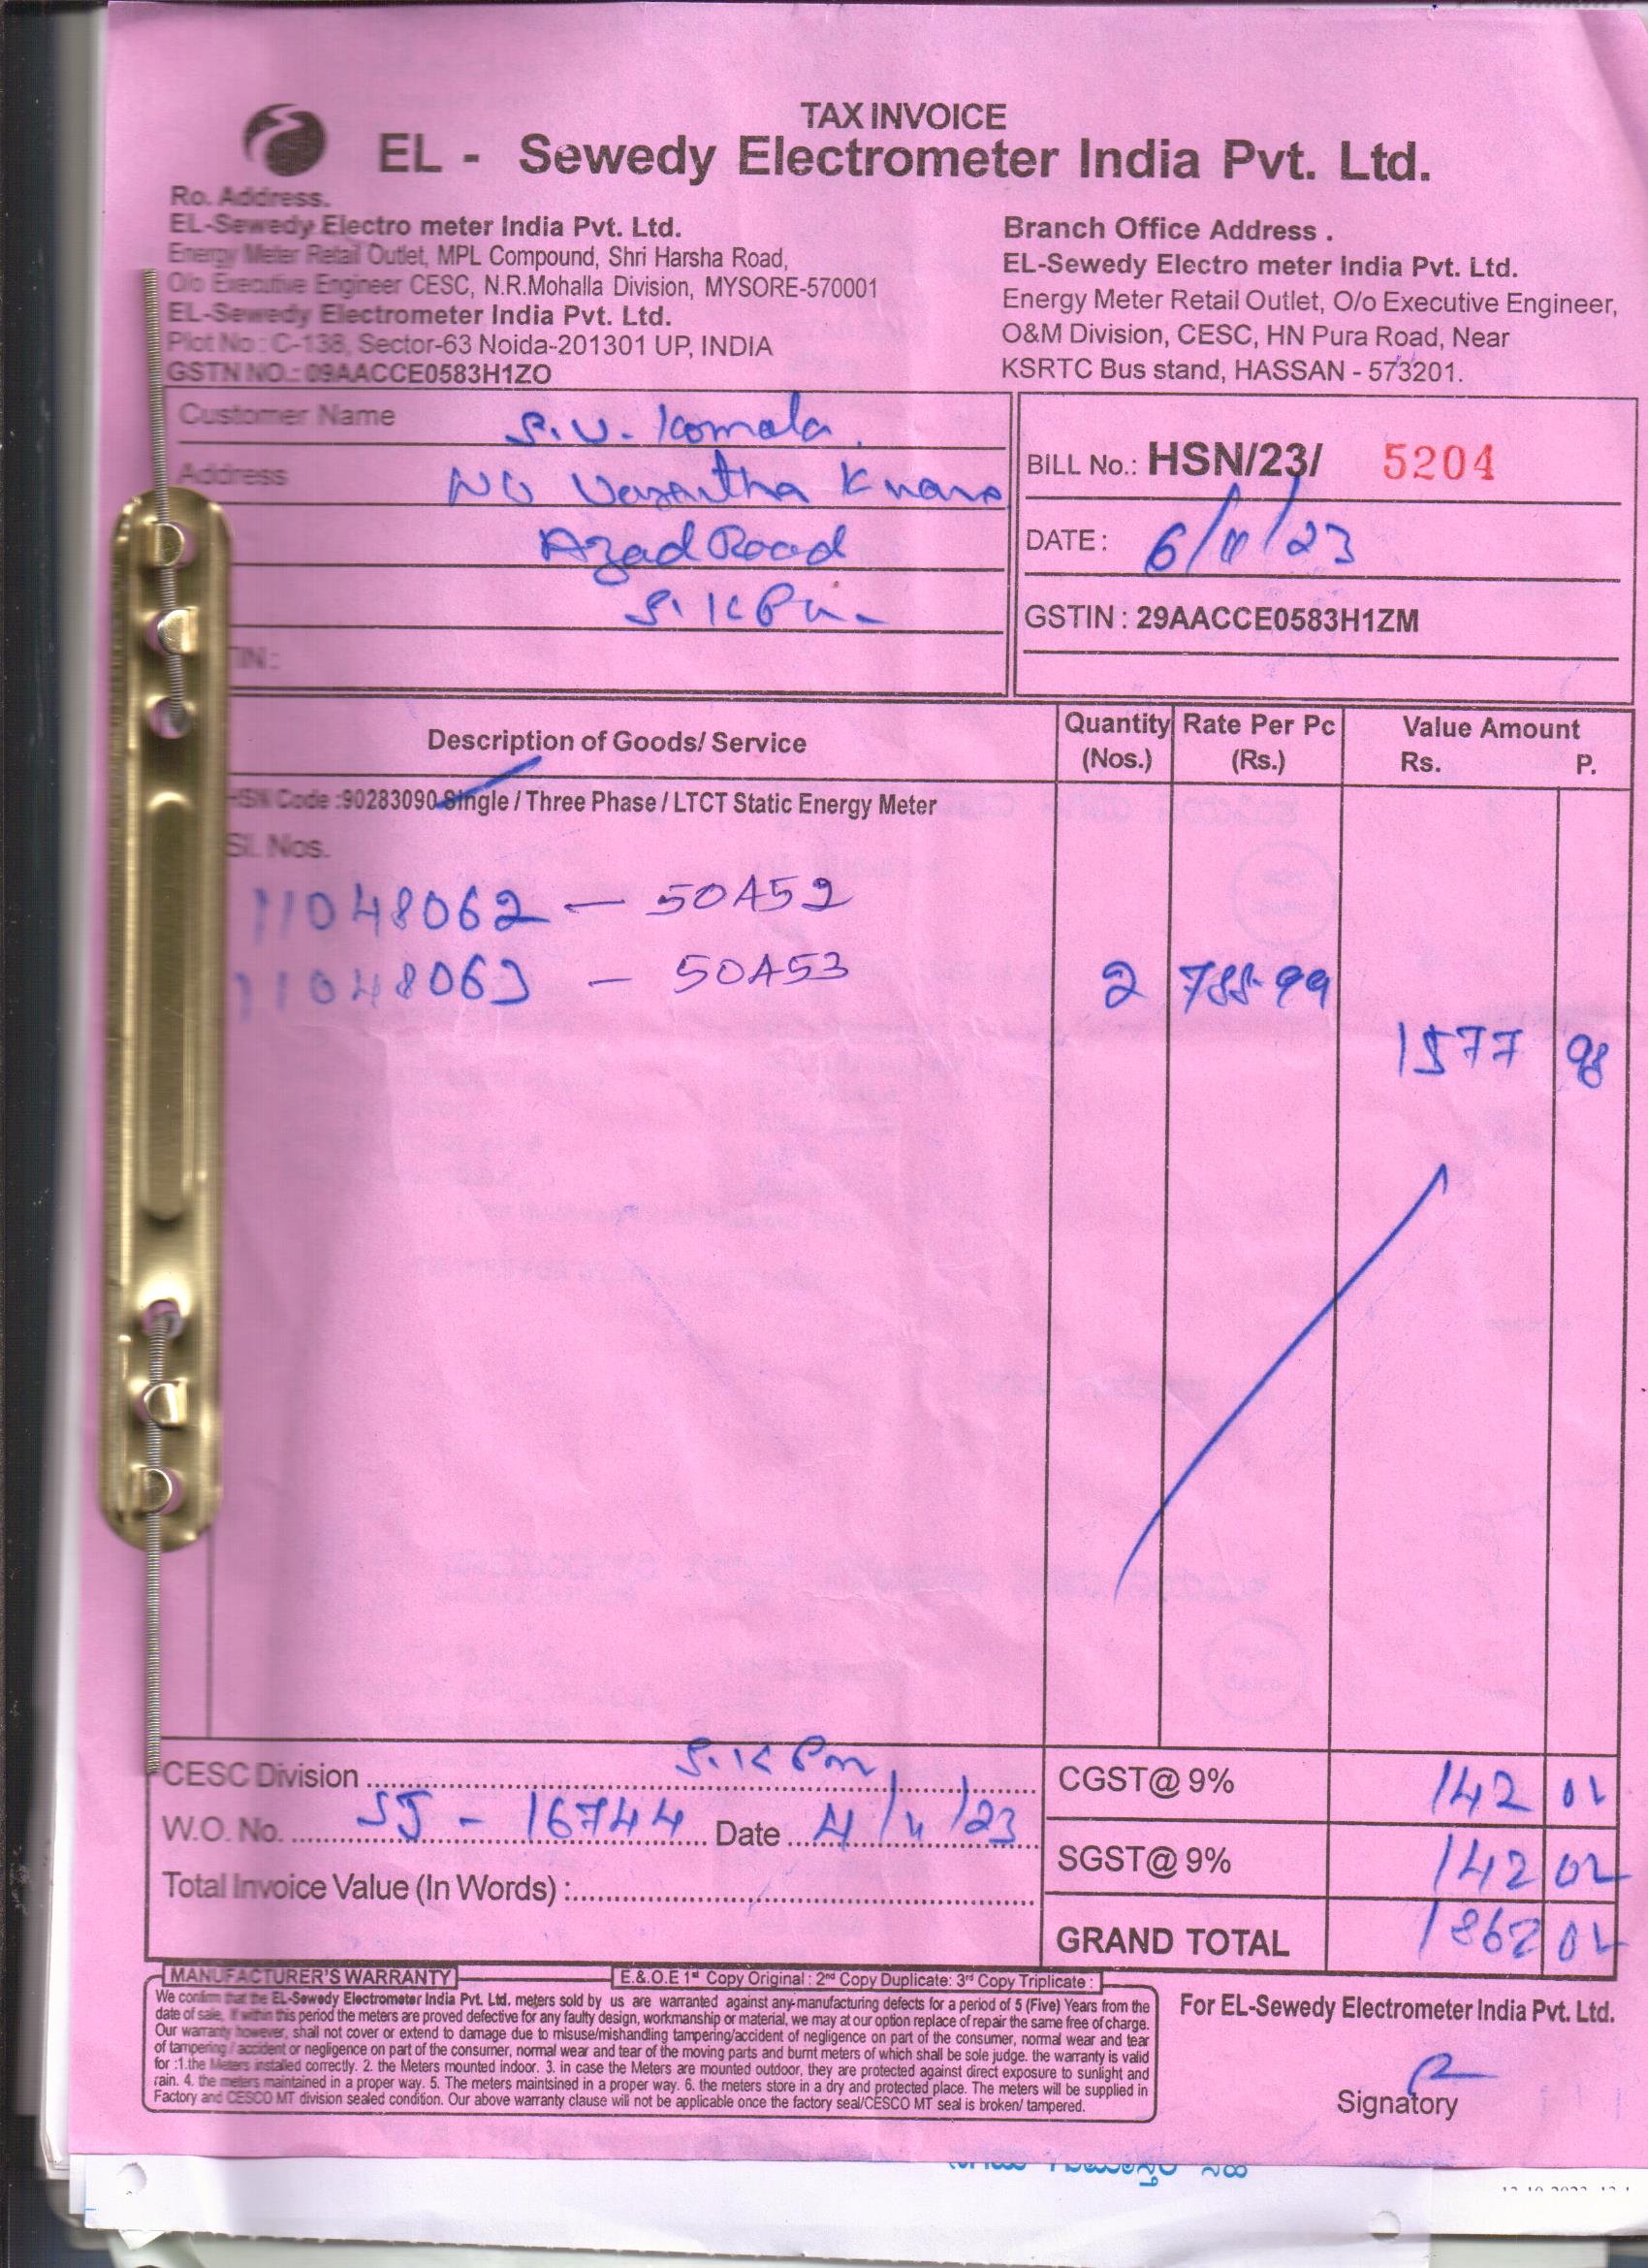 TAX INVOICE
EL - Sewedy Electrometer India Pvt. Ltd.
Ro. Address.
EL-Sewedy Electro meter India Pvt. Ltd.
Energy Meter Retail Outlet, MPL Compound, Shri Harsha Road,
O/o Executive Engineer CESC, N.R.Mohalla Division, MYSORE-570001
EL-Sewedy Electrometer India Pvt. Ltd.
Plot No : C-138, Sector-63 Noida-201301 UP, INDIA
GSTN NO.: 09AACCE0583H1ZO
Branch Office Address .
EL-Sewedy Electro meter India Pvt. Ltd.
Energy Meter Retail Outlet, O/o Executive Engineer,
O&M Division, CESC, HN Pura Road, Near
KSRTC Bus stand, HASSAN - 573201.
Customer Name S.V. Komala
Address No Vasantha
Azad Road
S.K Pu
TIN :
BILL No.: HSN/23/ 5204
DATE : 6/11/23
GSTIN : 29AACCE0583H1ZM
Description of Goods/ Service Quantity (Nos.) Rate Per Pc (Rs.) Value Amount Rs. P.
HSN Code :90283090 Single / Three Phase / LTCT Static Energy Meter
Sl. Nos.
11048062 — 50A52
11048063 — 50A53 2 788.99
1577 98
CESC Division S.K Pu CGST@ 9% 142 02
W.O. No. SJ - 16744 Date 4/11/23
SGST@ 9% 142 02
Total Invoice Value (In Words) :
GRAND TOTAL 1862 02
MANUFACTURER'S WARRANTY E.& O.E 1st Copy Original : 2nd Copy Duplicate: 3rd Copy Triplicate :
We confirm that the EL-Sewedy Electrometer India Pvt. Ltd. meters sold by us are warranted against any manufacturing defects for a period of 5 (Five) Years from the
date of sale, If within this period the meters are proved defective for any faulty design, workmanship or material, we may at our option replace of repair the same free of charge.
Our warranty however, shall not cover or extend to damage due to misuse/mishandling tampering/accident of negligence on part of the consumer, normal wear and tear
of tampering / accident or negligence on part of the consumer, normal wear and tear of the moving parts and burnt meters of which shall be sole judge. the warranty is valid
for :1.the Meters installed correctly. 2. the Meters mounted indoor. 3. in case the Meters are mounted outdoor, they are protected against direct exposure to sunlight and
rain. 4. the meters maintained in a proper way. 5. The meters maintsined in a proper way. 6. the meters store in a dry and protected place. The meters will be supplied in
Factory and CESCO MT division sealed condition. Our above warranty clause will not be applicable once the factory seal/CESCO MT seal is broken/ tampered.
For EL-Sewedy Electrometer India Pvt. Ltd.
Signatory